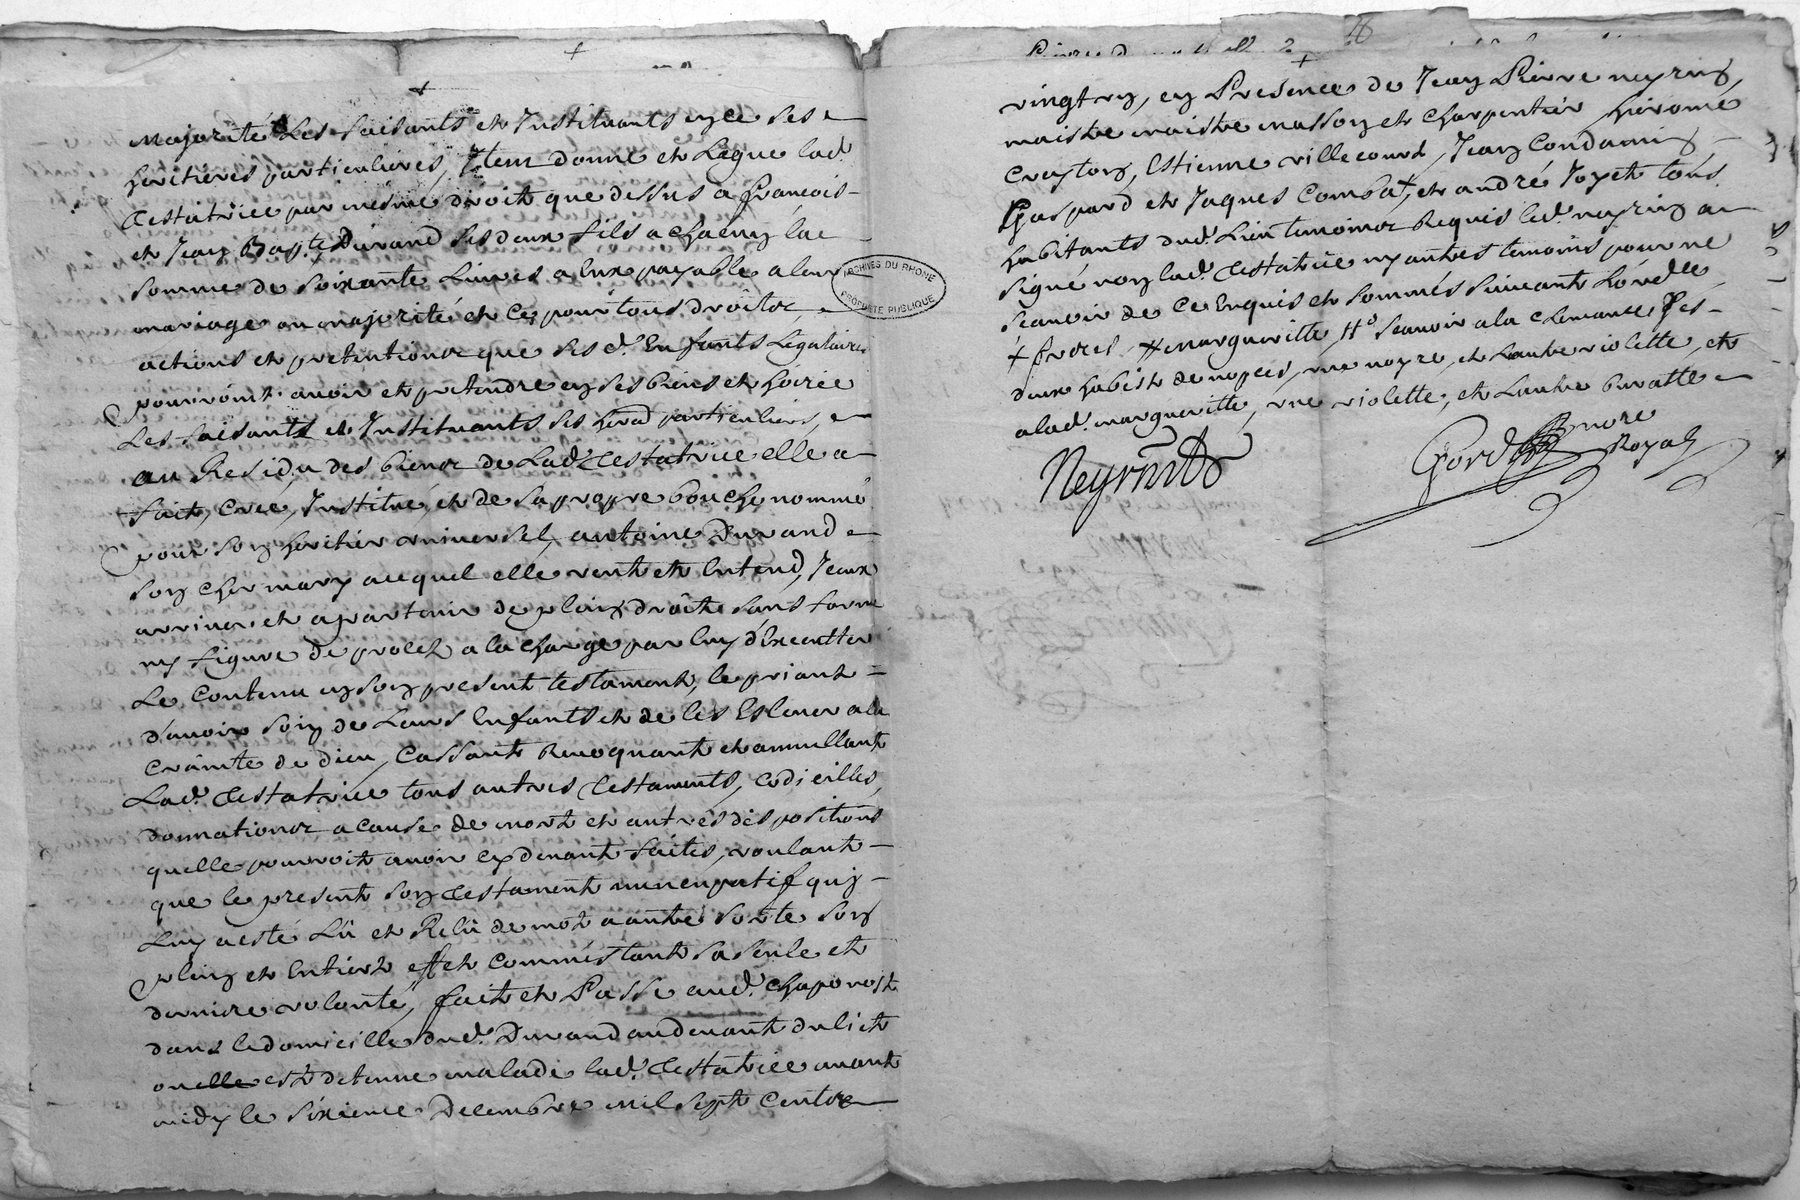 Majorité Les faisants et Instituants en ce ses
heritieres particulieres, Item donne et Legue lad.
testatrice par mesme droit que dessus a françois
et Jean Bap.te Durand ses deux fils a chacun la
somme de soixante Livres a Eux payable a leur
mariage ou majorité et ce pour tous droits,
actions et pretentions que ses d. Enfants Legataires
pourront avoir et pretendre en ses biens et hoirie
Les faisants et Instituants ses her. particuliers,
au Residu des biens de Lad. testatrice elle a
fait, creé, Institué, et de sa propre bouche nommé
pour son heritier universel, antoine Durand
son cher mary auquel elle veut et Entend, Iceux
arriver et apartenir de plain droit sans forme
ny figure de procez a la charge par luy d'Executter
Le contenu en son present testament, le priant
d'avoir soin de Leurs Enfants et de les Eslever a la
crainte de dieu, Cassant Revoquant et annullant
Lad. testatrice tous autres testaments, codicilles,
donnations a cause de mort et autres dispositions
quelle pourroit avoir cy devant faites, voulant
que le present son testament nuncupatif quy
Luy a esté Lû et Relû de mot a autre sorte son
plein et Entier effet comme estant sa seule et
derniere volonté, fait et Passé aud. chaponost
dans le domicille dud. Durand au devant du lict
ou elle est detenue malade lad. testatrice avant
midy le sixieme Decembre mil sept Cents
vingt un, en Presence de Jean Pierre neyrin,
maistre masson et charpentier hierome
Estienne villecourt, Jean Condamin,
Gaspard et Jaques Combat, et andré Joyet tous
habitants dud. Lieu temoins Requis led. neyrin a
signé non lad. testatrice ny autres temoins pour ne
sçavoir de ce Enquis et sommés suivant L'ord.ce
marguerite, sçavoir a la clemance, ses
deux habits de nopces, une noyre, et lautre violette, et
a lad. marguerite, une violette, et lautre buratte
Neyrin
Gord Nore
Royal
ARCHIVES DU RHONE
PROPRIETE PUBLIQUE